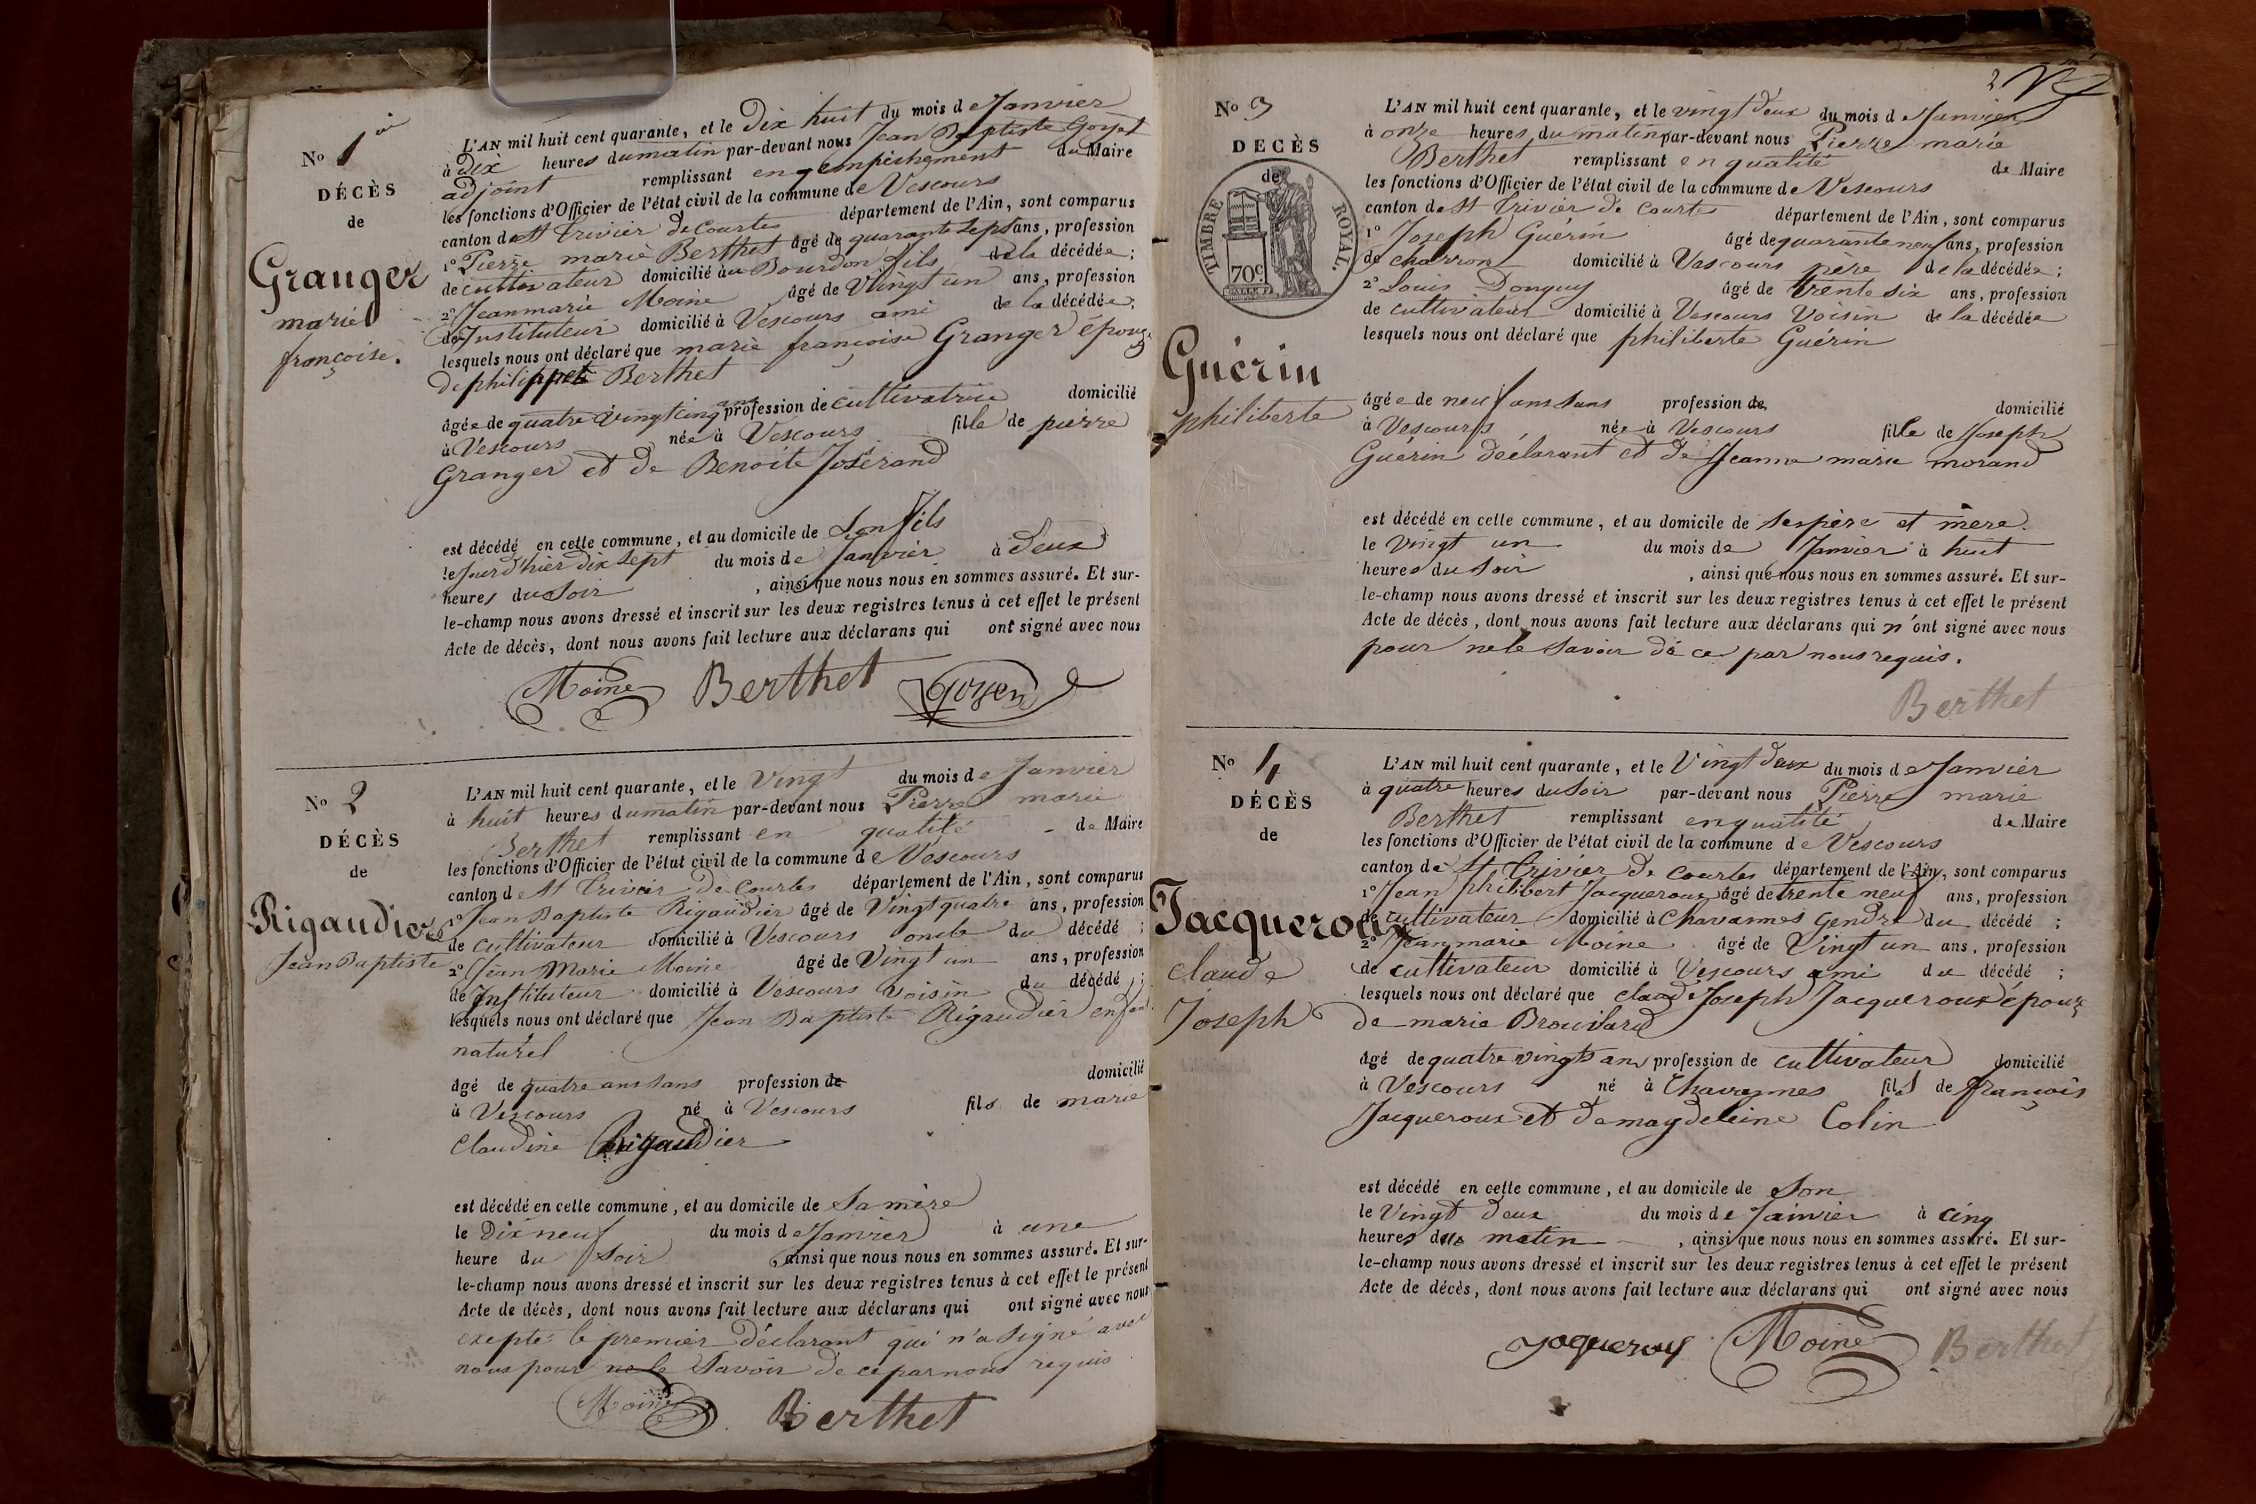 No 1er
DÉCÈS
de
Granger
marie
françoise.
L'AN mil huit cent quarante, et le dix huit du mois de Janvier
à dix heures du matin par-devant nous Jean Baptiste Goyet
adjoint remplissant en empêchement du Maire
les fonctions d'Officier de l'état civil de la commune de Vescours
canton de St Trivier de Courtes département de l'Ain, sont comparus
1º Pierre marie Berthet âgé de quarante sept ans, profession
de cultivateur domicilié au Bourdon fils de la décédée;
2º Jean marie Moine âgé de Vingt un ans, profession
de Instituteur domicilié à Vescours ami de la décédée;
lesquels nous ont déclaré que marie françoise Granger épouse
de philippe Berthet
âgée de quatre Vingt cinq ans profession de cultivatrice domicilié
à Vescours née à Vescours fille de pierre
Granger et de Benoite Joserand
est décédé en cette commune, et au domicile de Son fils
le jour d'hier dix sept du mois de Janvier à deux
heures du Soir , ainsi que nous nous en sommes assuré. Et sur-
le-champ nous avons dressé et inscrit sur les deux registres tenus à cet effet le présent
Acte de décès, dont nous avons fait lecture aux déclarans qui ont signé avec nous
Moine Berthet
No 2
DÉCÈS
de
Rigaudier
Jean Baptiste
L'AN mil huit cent quarante, et le Vingt du mois de Janvier
à huit heures du matin par-devant nous Pierre marie
Berthet remplissant en qualité de Maire
les fonctions d'Officier de l'état civil de la commune de Vescours
canton de St Trivier de Courtes département de l'Ain, sont comparus
1º Jean Baptiste Rigaudier âgé de Vingt quatre ans, profession
de cultivateur domicilié à Vescours oncle du décédé ;
2º Jean Marie Moine âgé de Vingt un ans, profession
de Instituteur domicilié à Vescours Voisin du décédé ;
lesquels nous ont déclaré que Jean Baptiste Rigaudier enfant
naturel
âgé de quatre ans Sans profession de domicilié
à Vescours né à Vescours fils de marie
Claudine Rigaudier
est décédé en cette commune, et au domicile de Sa mère
le dix neuf du mois de Janvier à une
heure du Soir ainsi que nous nous en sommes assuré. Et sur-
le-champ nous avons dressé et inscrit sur les deux registres tenus à cet effet le présent
Acte de décès, dont nous avons fait lecture aux déclarans qui ont signé avec nous
exepté le premier déclarant qui n'a Signé avec
nous pour ne le Savoir de ce par nous requis
Moine Berthet
2
No 3
DECÈS
de
TIMBRE ROYAL.
70c
Guérin
philiberte
L'AN mil huit cent quarante, et le vingt deux du mois de Janvier
à onze heures du matin par-devant nous Pierre marie
Berthet remplissant en qualité de Maire
les fonctions d'Officier de l'état civil de la commune de Vescours
canton de St Trivier de Courtes département de l'Ain, sont comparus
1º Joseph Guérin âgé de quarante neuf ans, profession
de charron domicilié à Vescours père de la décédée;
2º Louis Donguy âgé de trente six ans, profession
de cultivateur domicilié à Vescours Voisin de la décédée
lesquels nous ont déclaré que philiberte Guérin
âgée de neuf ans Sans profession de domicilié
à Vescours née à Vescours fille de Joseph
Guérin déclarant et de Jeanne marie morand
est décédé en cette commune, et au domicile de Ses père et mère.
le Vingt un du mois de Janvier à huit
heures du Soir , ainsi que nous nous en sommes assuré. Et sur-
le-champ nous avons dressé et inscrit sur les deux registres tenus à cet effet le présent
Acte de décès, dont nous avons fait lecture aux déclarans qui n'ont signé avec nous
pour ne le Savoir de ce par nous requis.
Berthet
No 4
DÉCÈS
de
Jacqueroux
claude
Joseph
L'AN mil huit cent quarante, et le Vingt deux du mois de Janvier
à quatre heures du Soir par-devant nous Pierre marie
Berthet remplissant en qualité de Maire
les fonctions d'Officier de l'état civil de la commune de Vescours
canton de St Trivier de Courtes département de l'Ain, sont comparus
1º Jean philibert Jacqueroux âgé de trente neuf ans, profession
de cultivateur domicilié à Chavannes Gendre du décédé ;
2º Jean marie Moine âgé de Vingt un ans, profession
de cultivateur domicilié à Vescours ami du décédé ;
lesquels nous ont déclaré que claude Joseph Jacqueroux époux
de marie Brouilard
âgé de quatre vingts ans profession de cultivateur domicilié
à Vescours né à Chavannes fils de françois
Jacqueroux et de magdeleine Colin
est décédé en cette commune, et au domicile de Son
le Vingt deux du mois de Janvier à cinq
heures du matin , ainsi que nous nous en sommes assuré. Et sur-
le-champ nous avons dressé et inscrit sur les deux registres tenus à cet effet le présent
Acte de décès, dont nous avons fait lecture aux déclarans qui ont signé avec nous
Moine Berthet